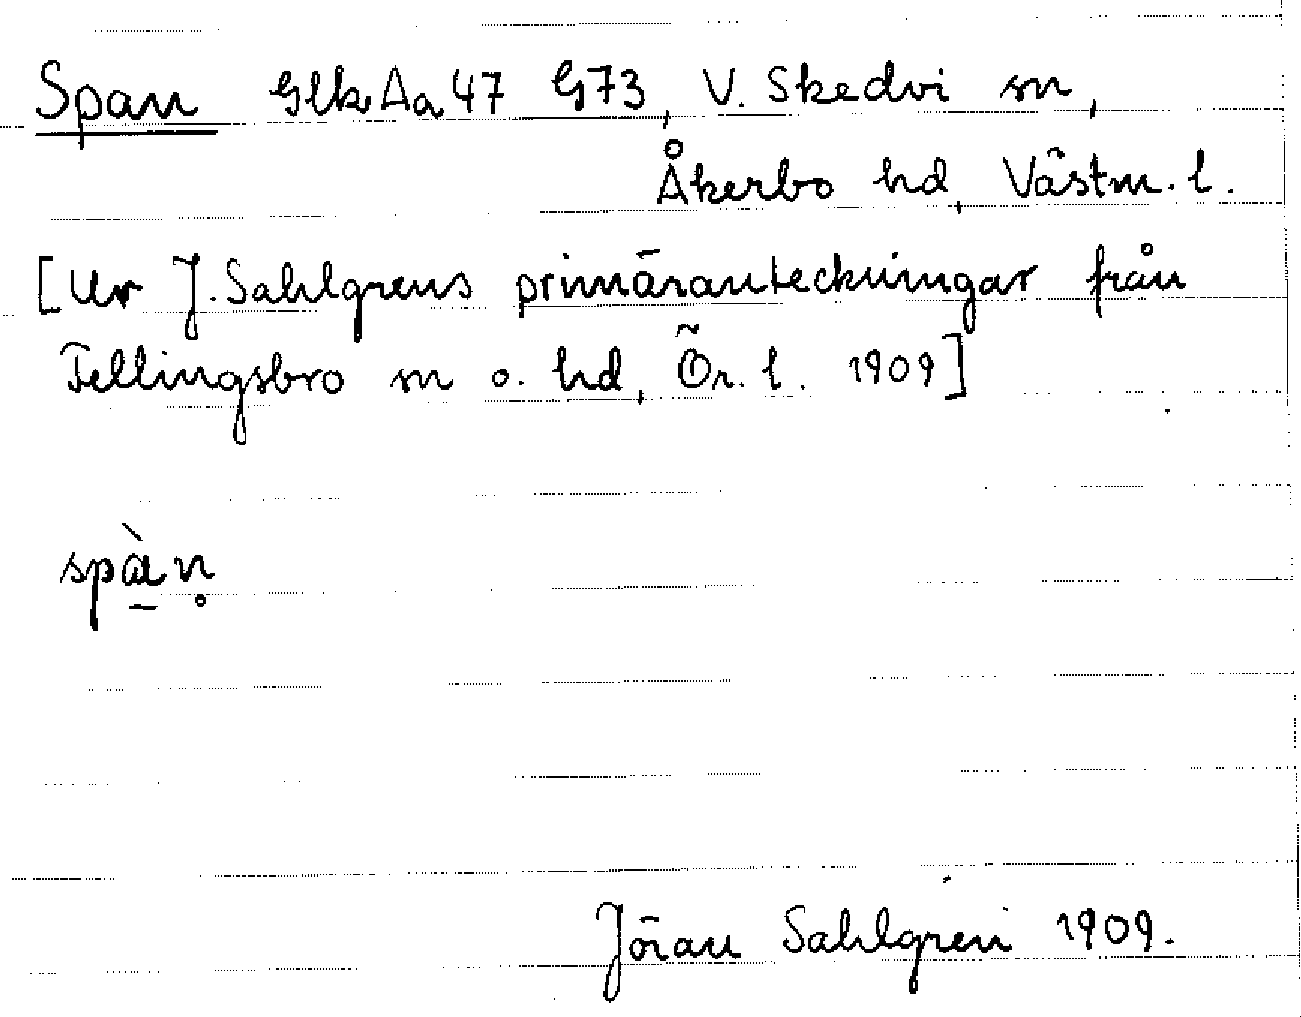 Span GlkAa47 G73, V. Skedvi sn,
Åkerbo hd, Västm. l.
[Ur J. Sahlgrens primäranteckningar från
Fellingsbro sn o. hd, Ör. l. 1909]
spàn̥
Jöran Sahlgren 1909.